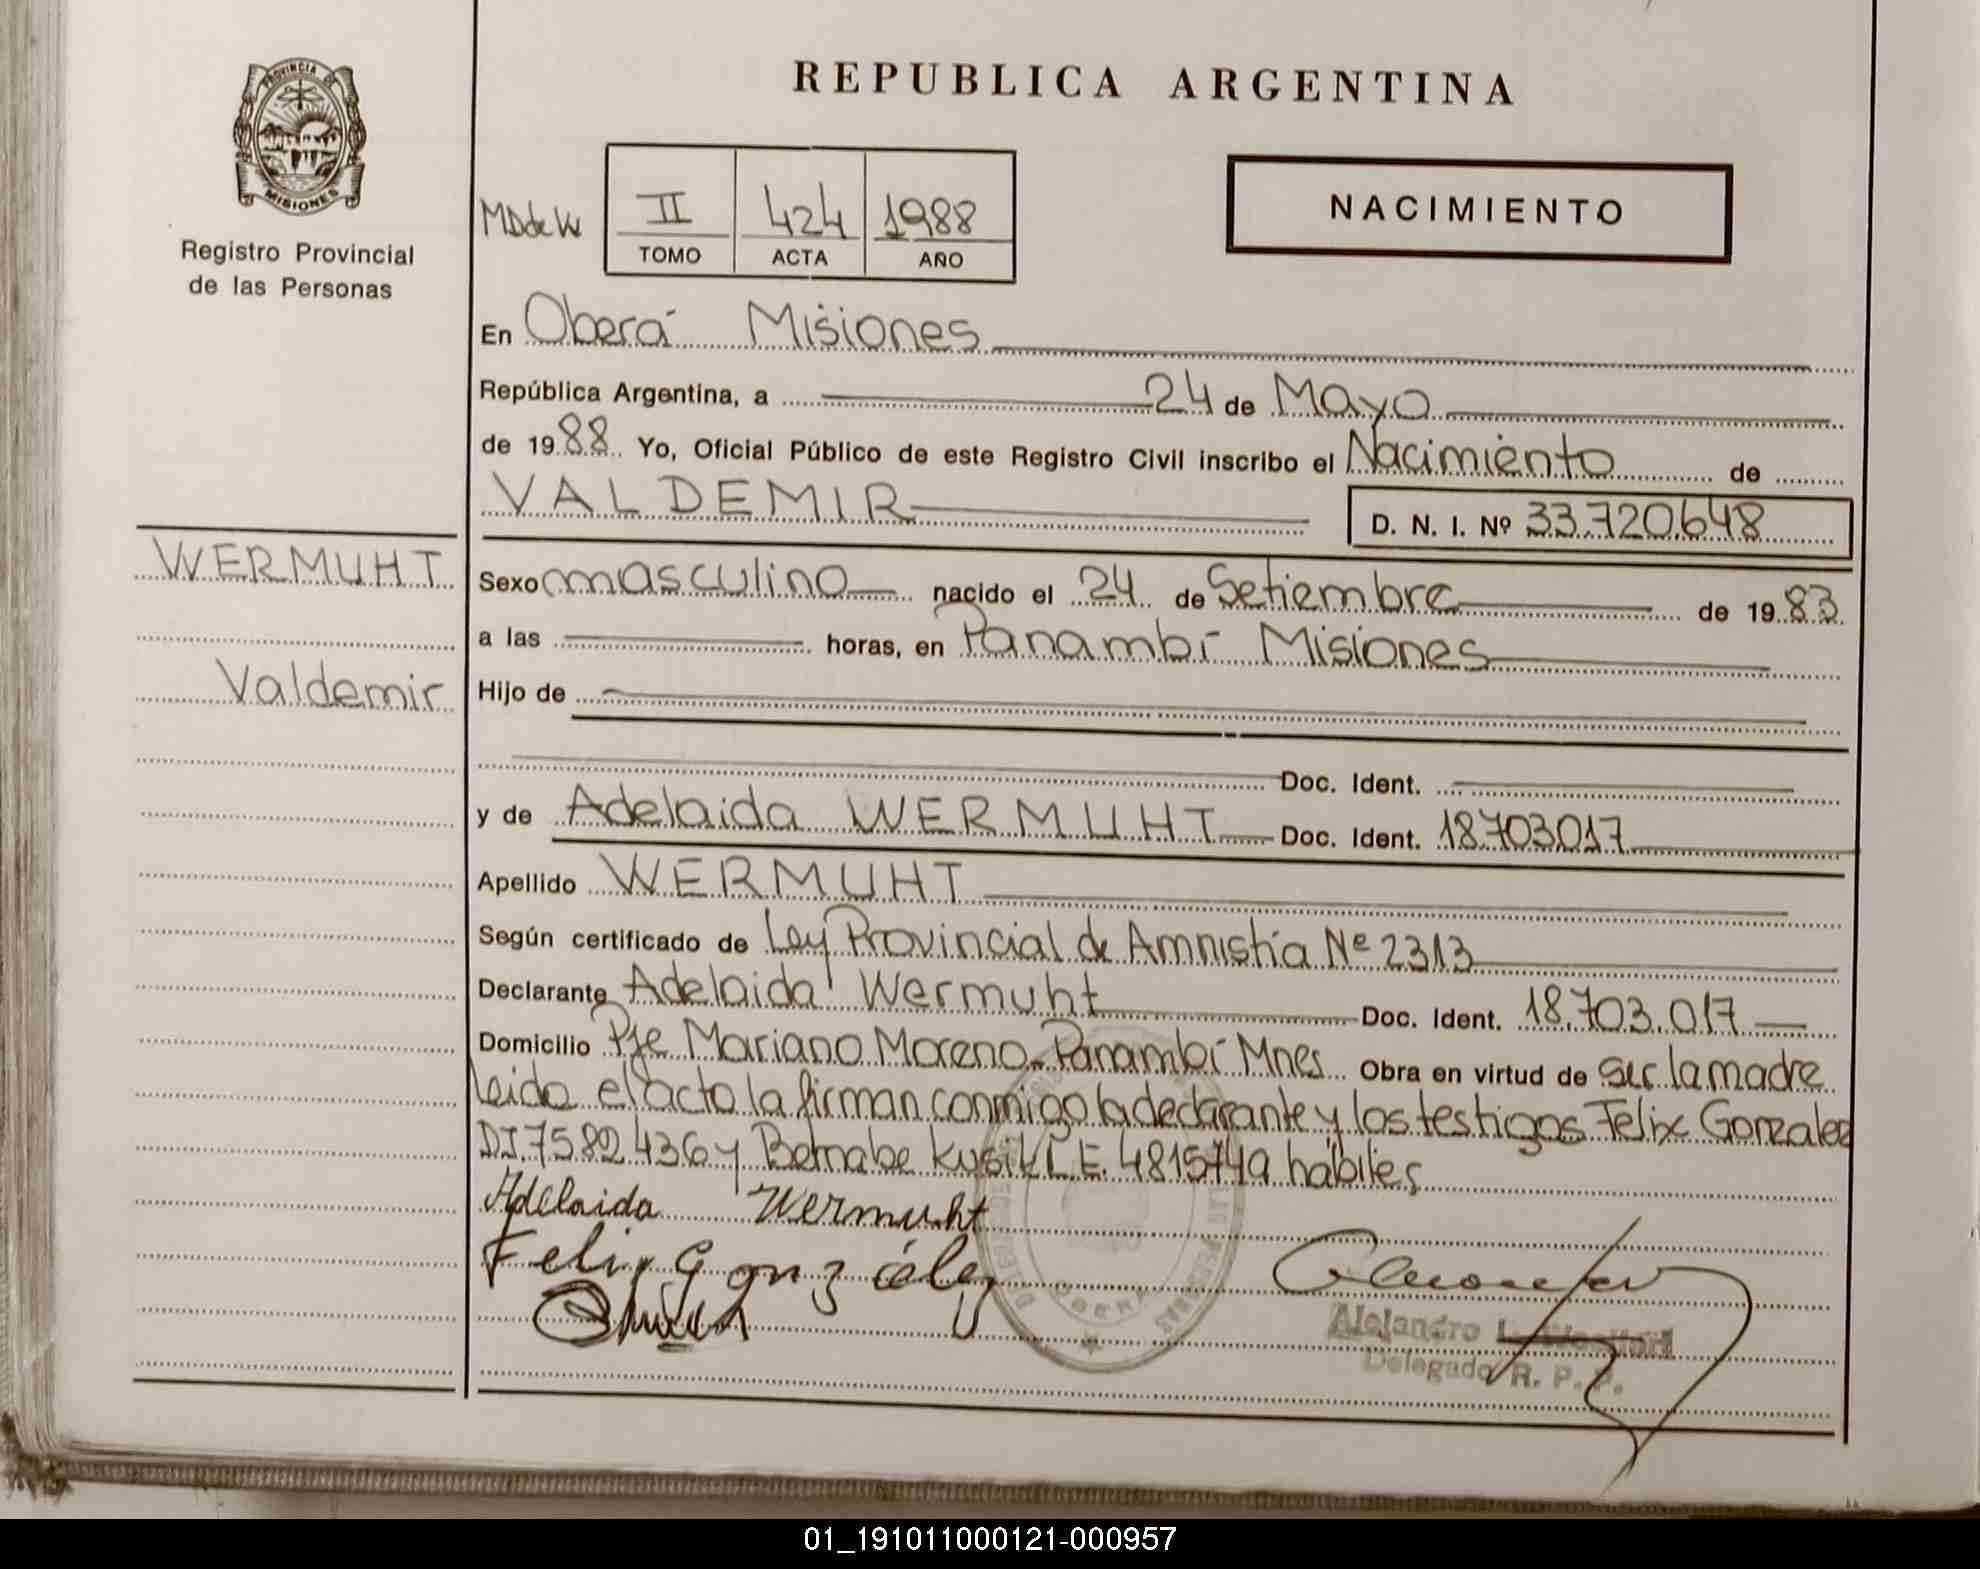 REPUBLICA ARGENTINA
PROVINCIA DE
MISIONES
Registro Provincial
de las Personas
II 424 1988
TOMO ACTA AÑO
NACIMIENTO
En Oberá Misiones
República Argentina, a 24 de Mayo
de 1988 Yo, Oficial Público de este Registro Civil inscribo el Nacimiento de
VALDEMIR D. N. I. Nº 33.720.648
WERMUHT
Valdemir
Sexo masculino nacido el 24 de Setiembre de 1983
a las horas, en Panambí Misiones
Hijo de
Doc. Ident.
y de Adelaida WERMUHT Doc. Ident. 18703017
Apellido WERMUHT
Según certificado de Ley Provincial de Amnistía Nº 2313
Declarante Adelaida Wermuht Doc. Ident. 18.703.017
Domicilio Pje Mariano Moreno Panambí Mnes Obra en virtud de ser la madre
leida el acto la firman conmigo la declarante y los testigos Felix Gonzalez
DI. 7582436 y Bernabe L.E. 4815749 hábiles
Adelaida Wermuht
Felix González
Alejandro
Delegado R. P. P.
01_191011000121-000957